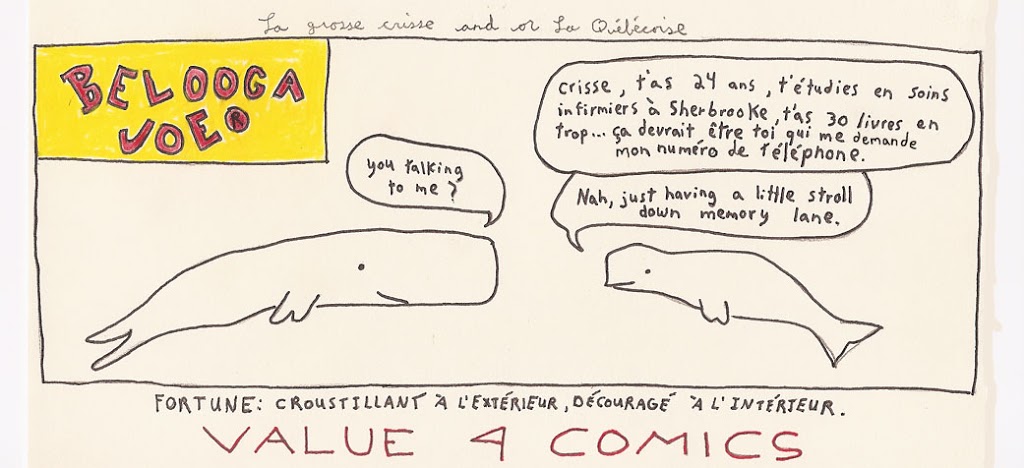 La grosse crisse and or La Québécoise
BELOOGA
JOE®
crisse, t'as 24 ans, t'étudies en soins
infirmiers à Sherbrooke, t'as 30 livres en
trop... ça devrait être toi qui me demande
mon numéro de téléphone.
you talking
to me?
Nah, just having a little stroll
down memory lane.
FORTUNE: CROUSTILLANT À L'EXTÉRIEUR, DÉCOURAGÉ À L'INTÉRIEUR.
VALUE 4 COMICS